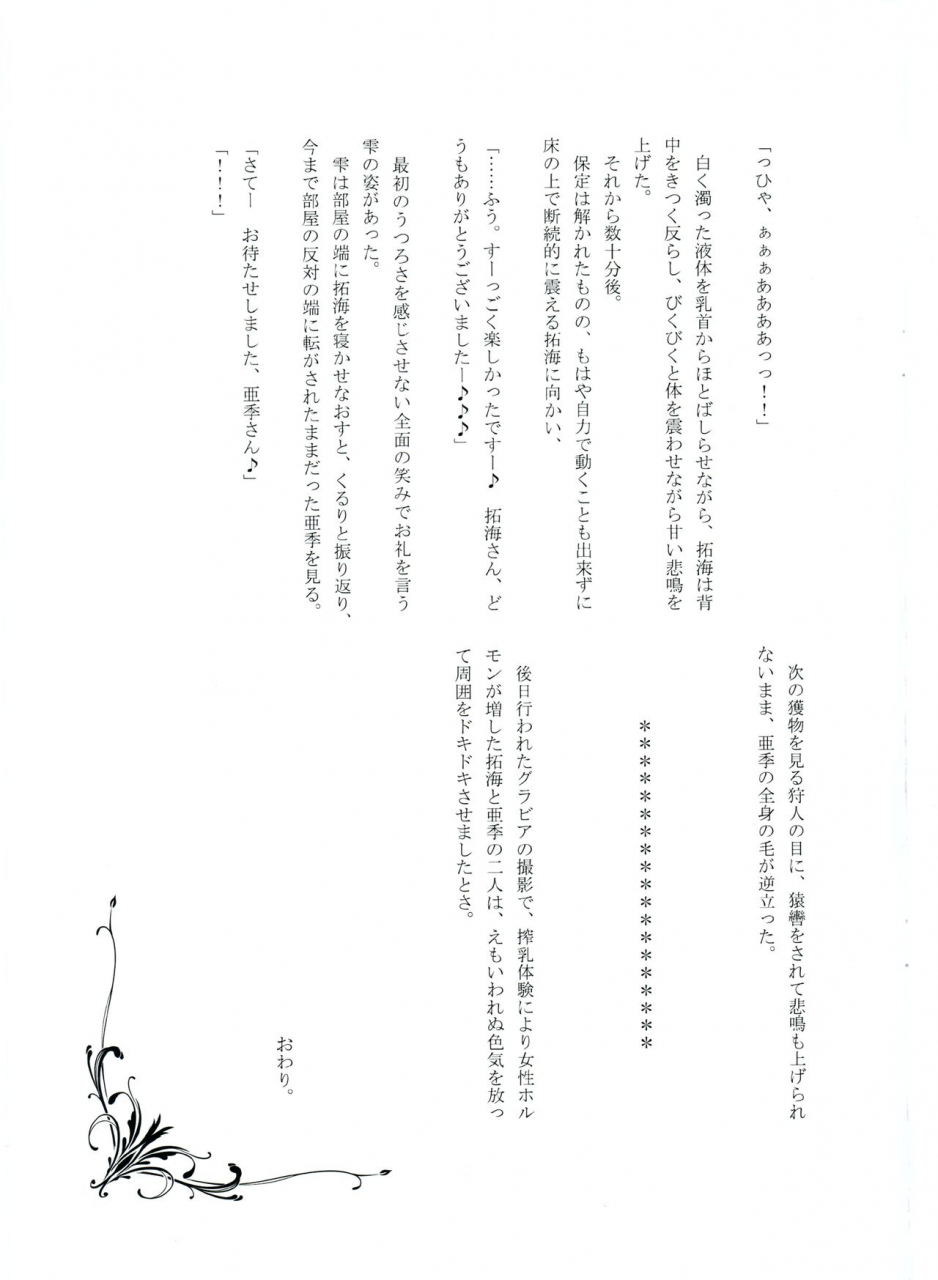 「っひや、ぁぁぁああああっっ！！」
　白く濁った液体を乳首からほとばしらせながら、拓海は背
中をきつく反らし、びくびくと体を震わせながら甘い悲鳴を
上げた。
　それから数十分後。
　保定は解かれたものの、もはや自力で動くことも出来ずに
床の上で断続的に震える拓海に向かい、
「……ふう。すーっごく楽しかったですー♪　拓海さん、ど
うもありがとうございましたー♪♪♪」
　最初のうつろさを感じさせない全面の笑みでお礼を言う
雫の姿があった。
　雫は部屋の端に拓海を寝かせなおすと、くるりと振り返り、
今まで部屋の反対の端に転がされたままだった亜季を見る。
「さてー　お待たせしました、亜季さん♪」
「！！！」
　次の獲物を見る狩人の目に、猿轡をされて悲鳴も上げられ
ないまま、亜季の全身の毛が逆立った。
＊＊＊＊＊＊＊＊＊＊＊＊＊＊＊＊＊＊＊
　後日行われたグラビアの撮影で、搾乳体験により女性ホル
モンが増した拓海と亜季の二人は、えもいわれぬ色気を放っ
て周囲をドキドキさせましたとさ。
おわり。